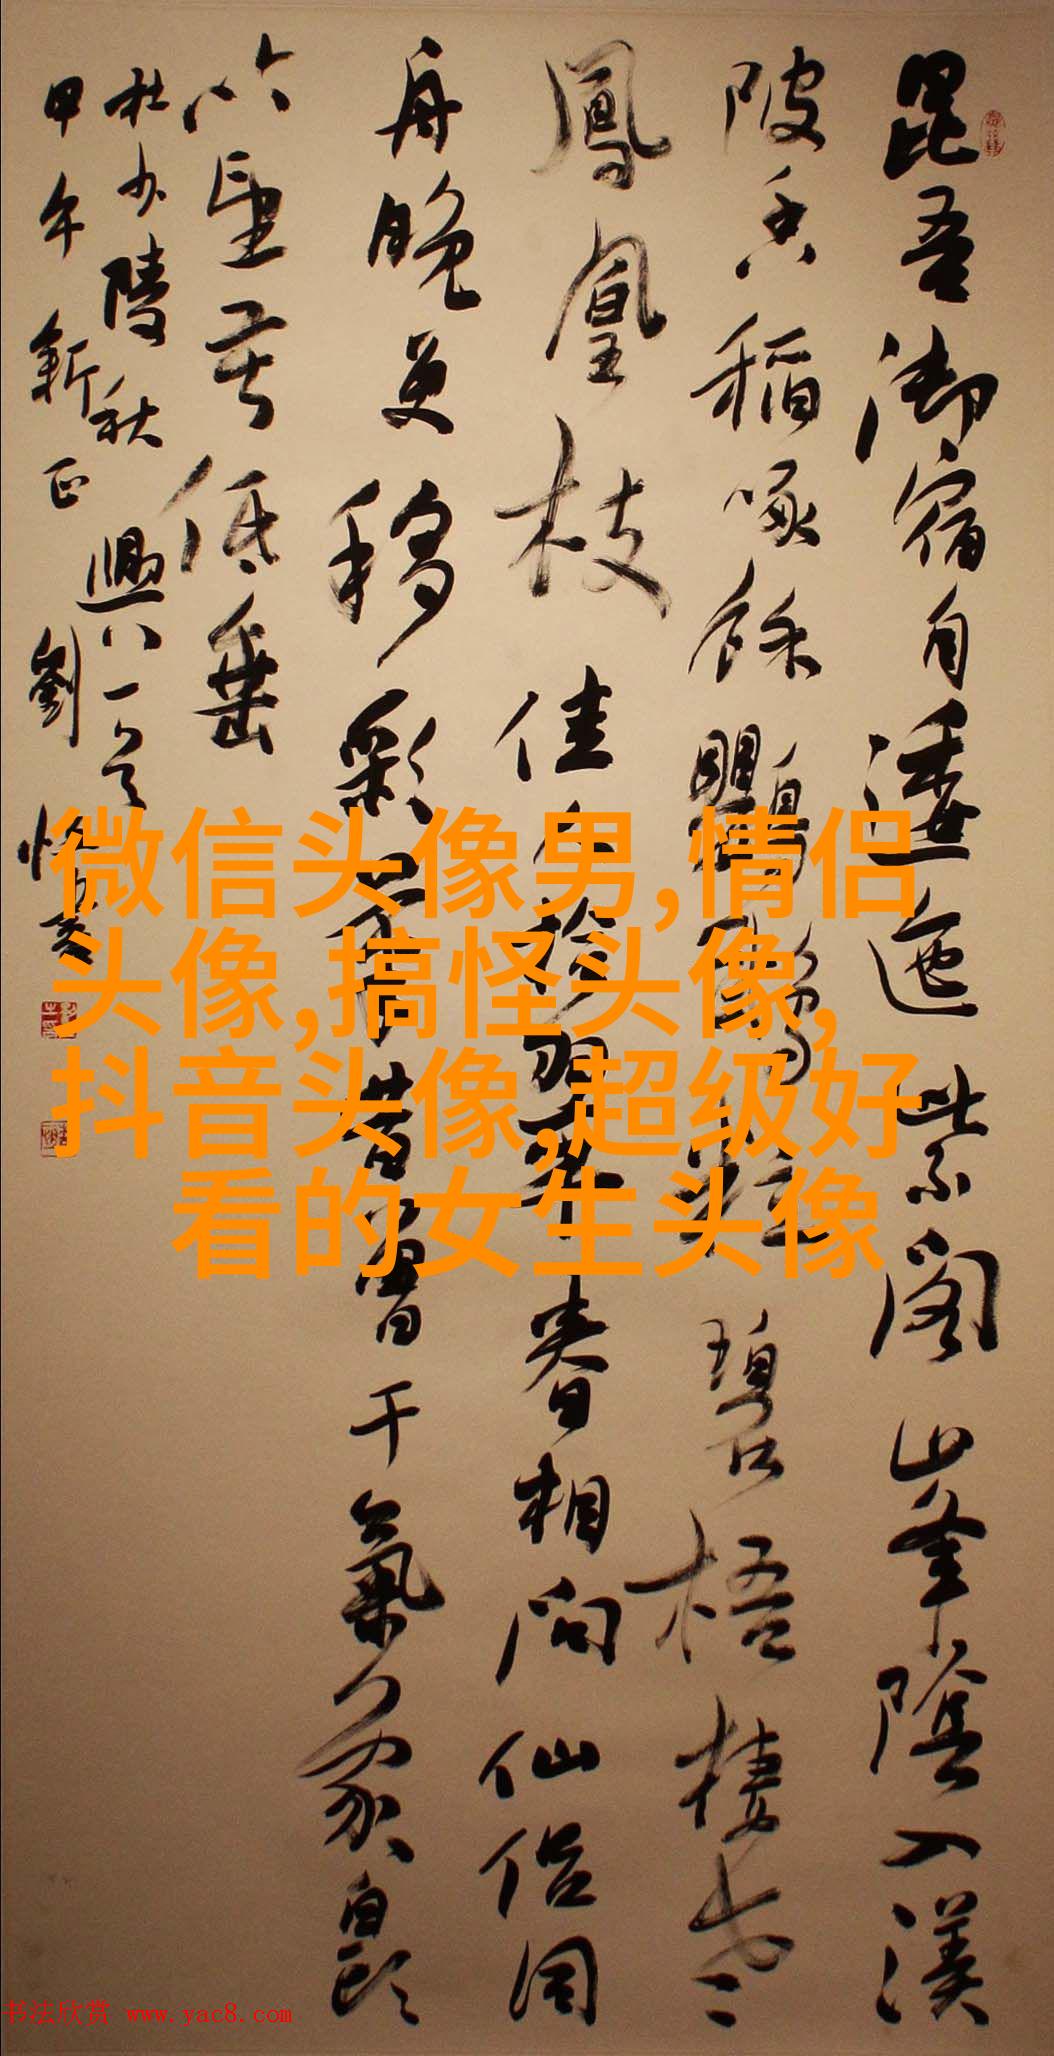 昆吾御宿自逶迤紫阁山峯陰入渼
陂香稻啄餘鸚鵡粒碧梧棲老
鳳凰枝佳人拾翠春相问仙侣同
舟晚更移彩筆昔曾干氣象白頭
吟望苦低垂
杜少陵秋興八一首
甲午新正劉
微信头像男,情侣
头像,搞怪头像,
抖音头像,超级好
看的女生头像
书法欣赏 www.yac8.com